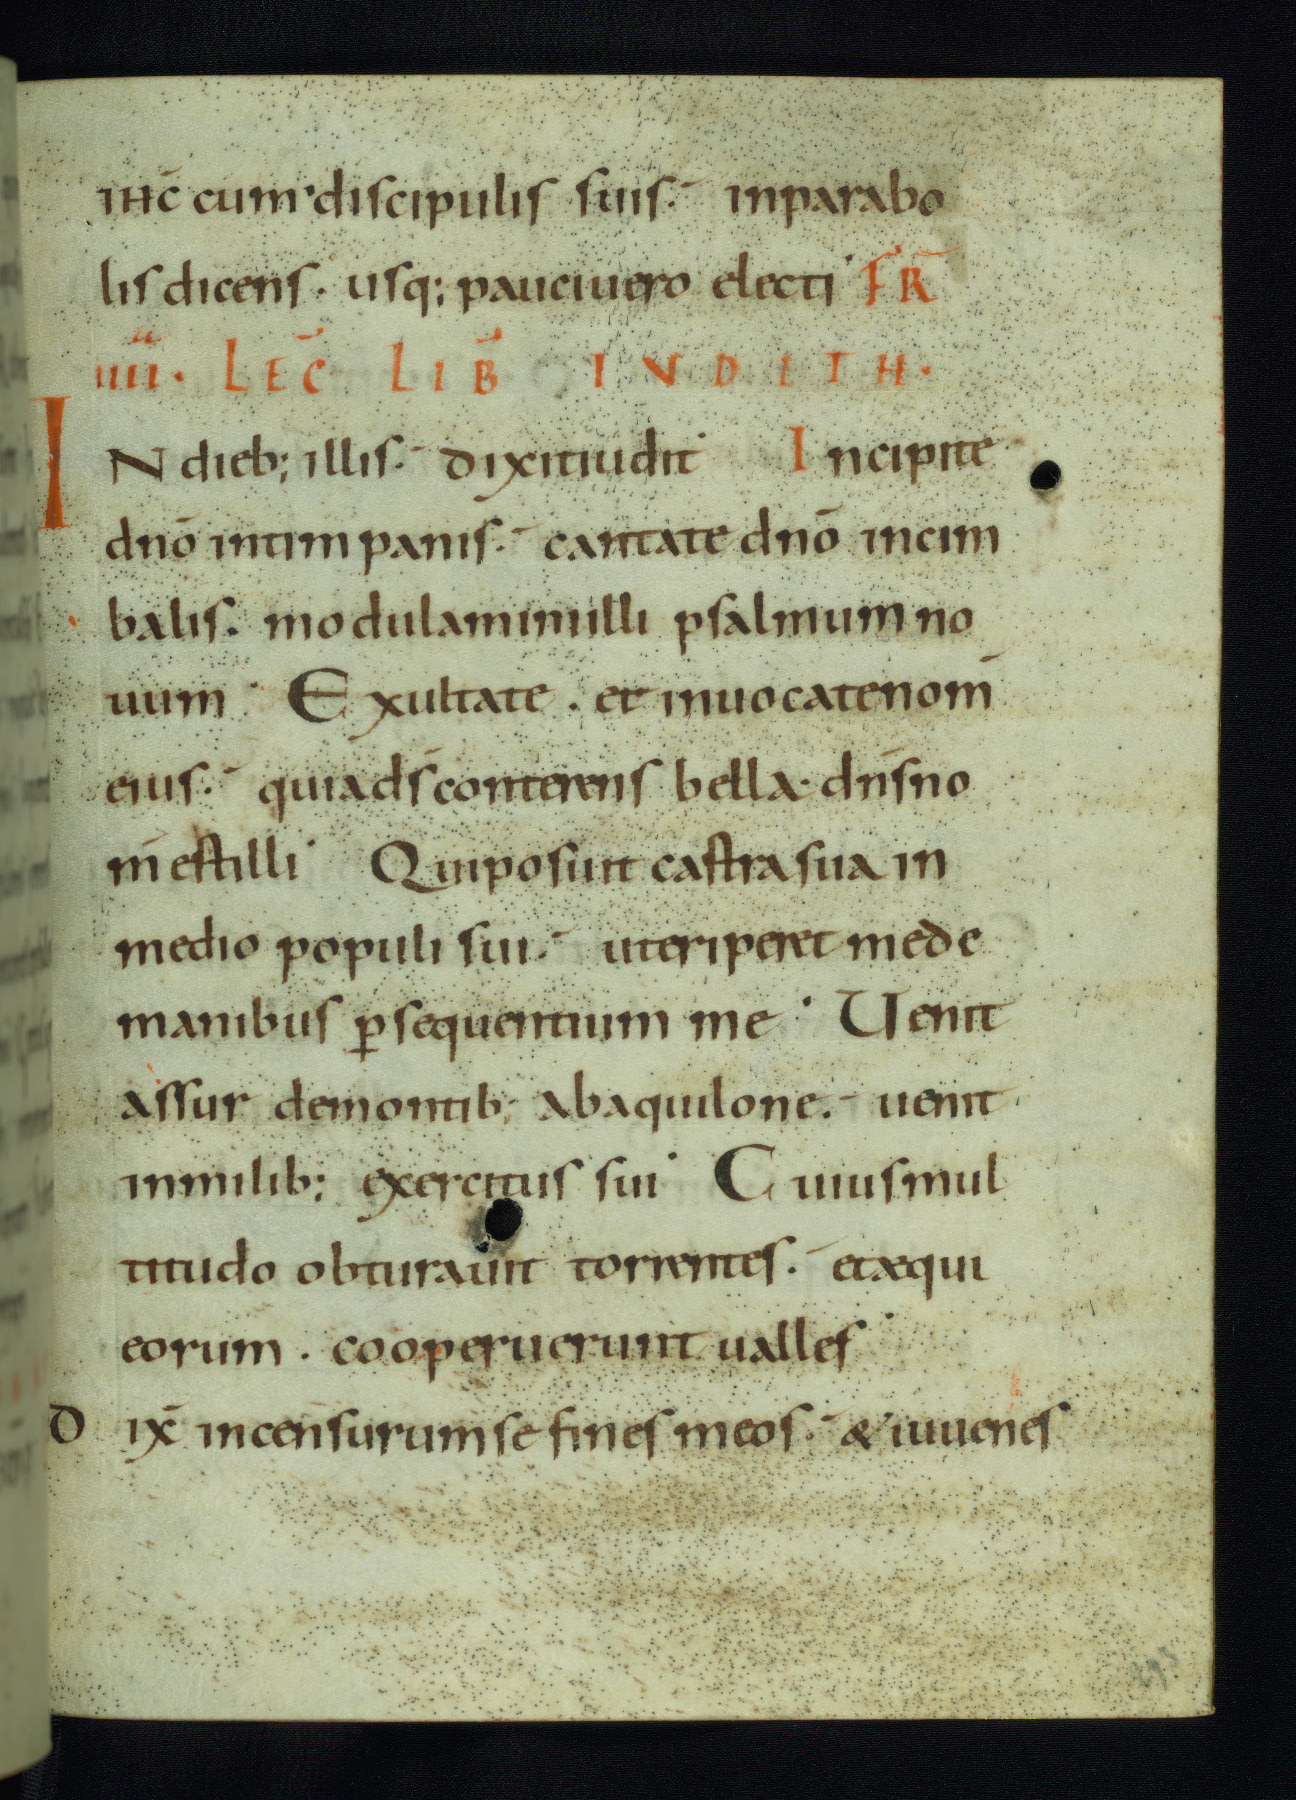 ihc̄ cum discipulis suis. inparabo
lis dicens. usq; pauciuero electi FR̄
IIII. LEC̄ LIB̄ IUDITH.
IN dieb; illis. dixitiudit Incipite
dnō intimpanis. cantate dnō incim
balis. modulaminiilli psalmum no
uum Exultate. et inuocatenom̄
eius. quiads̄ conterens bella dn̄s no
m̄ estilli Quiposuit castrasua in
medio populi sui. uteriperet mede
manibus ꝑsequentium me Uenit
assur demontib; abaquilone. uenit
inmilib; exercitus sui Cuiusmul
titudo obturauit torrentes. etæqui
eorum. cooperuerunt ualles
Dix̄ incensurumse fines meos. & iuuenes